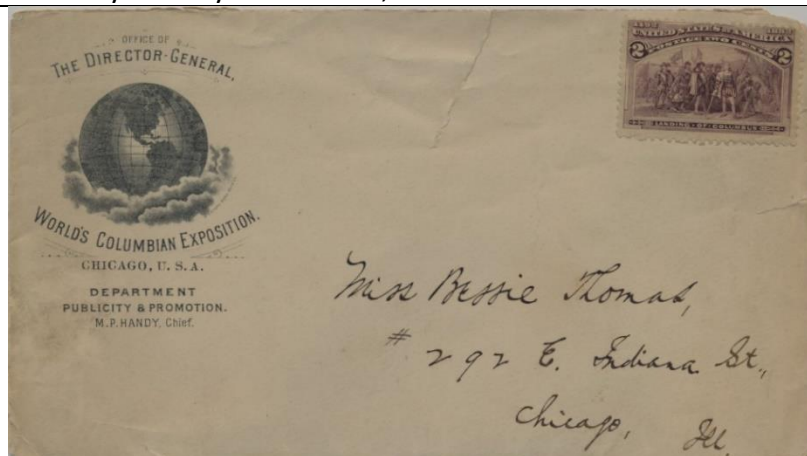 OFFICE OF
THE DIRECTOR-GENERAL,
WORLD'S COLUMBIAN EXPOSITION.
CHICAGO, U.S.A.
DEPARTMENT
PUBLICITY & PROMOTION.
M.P. HANDY, Chief.
1492 1892
UNITED STATES OF AMERICA
2 POSTAGE TWO CENTS 2
LANDING OF COLUMBUS
Miss Bessie Thomas,
# 292 E. Indiana St.,
Chicago, Ill